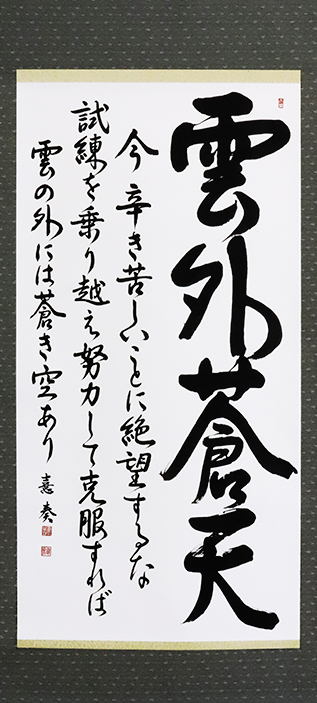 雲外蒼天
今辛き苦しいことに絶望するな
試練を乗り越え努力して克服すれば
雲の外には蒼き空あり 憙奏